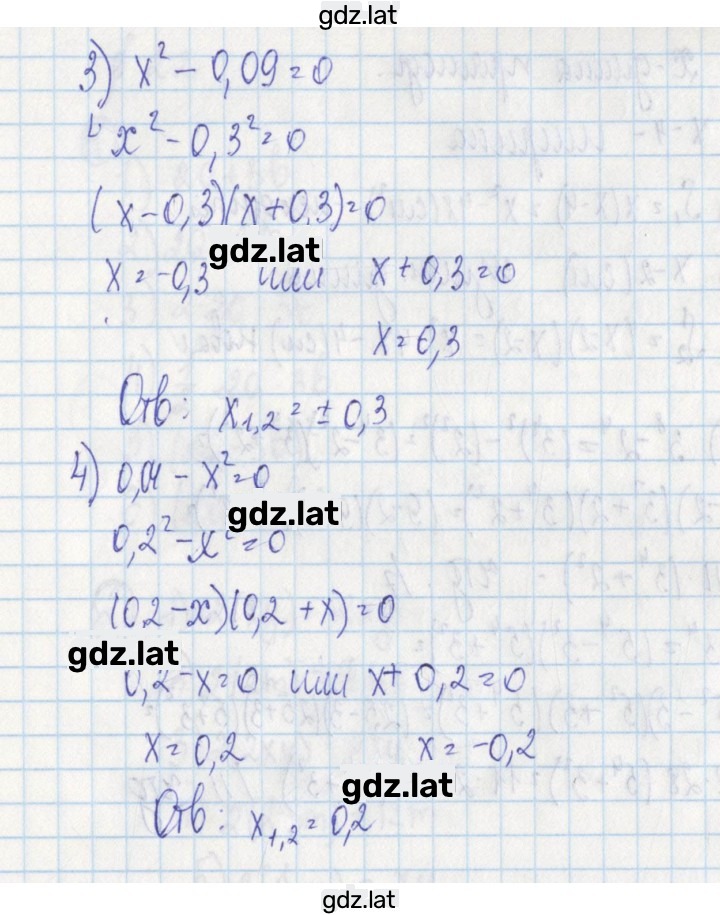 gdz.lat
3) x² - 0,09 = 0
x² - 0,3² = 0
(x - 0,3)(x + 0,3) = 0
gdz.lat
x = -0,3 или x + 0,3 = 0
x = 0,3
Отв: x₁,₂ = ± 0,3
4) 0,04 - x² = 0
gdz.lat
0,2² - x² = 0
(0,2 - x)(0,2 + x) = 0
gdz.lat
0,2 - x = 0 или x + 0,2 = 0
x = 0,2 x = -0,2
gdz.lat
Отв: x₁,₂ = 0,2
gdz.lat